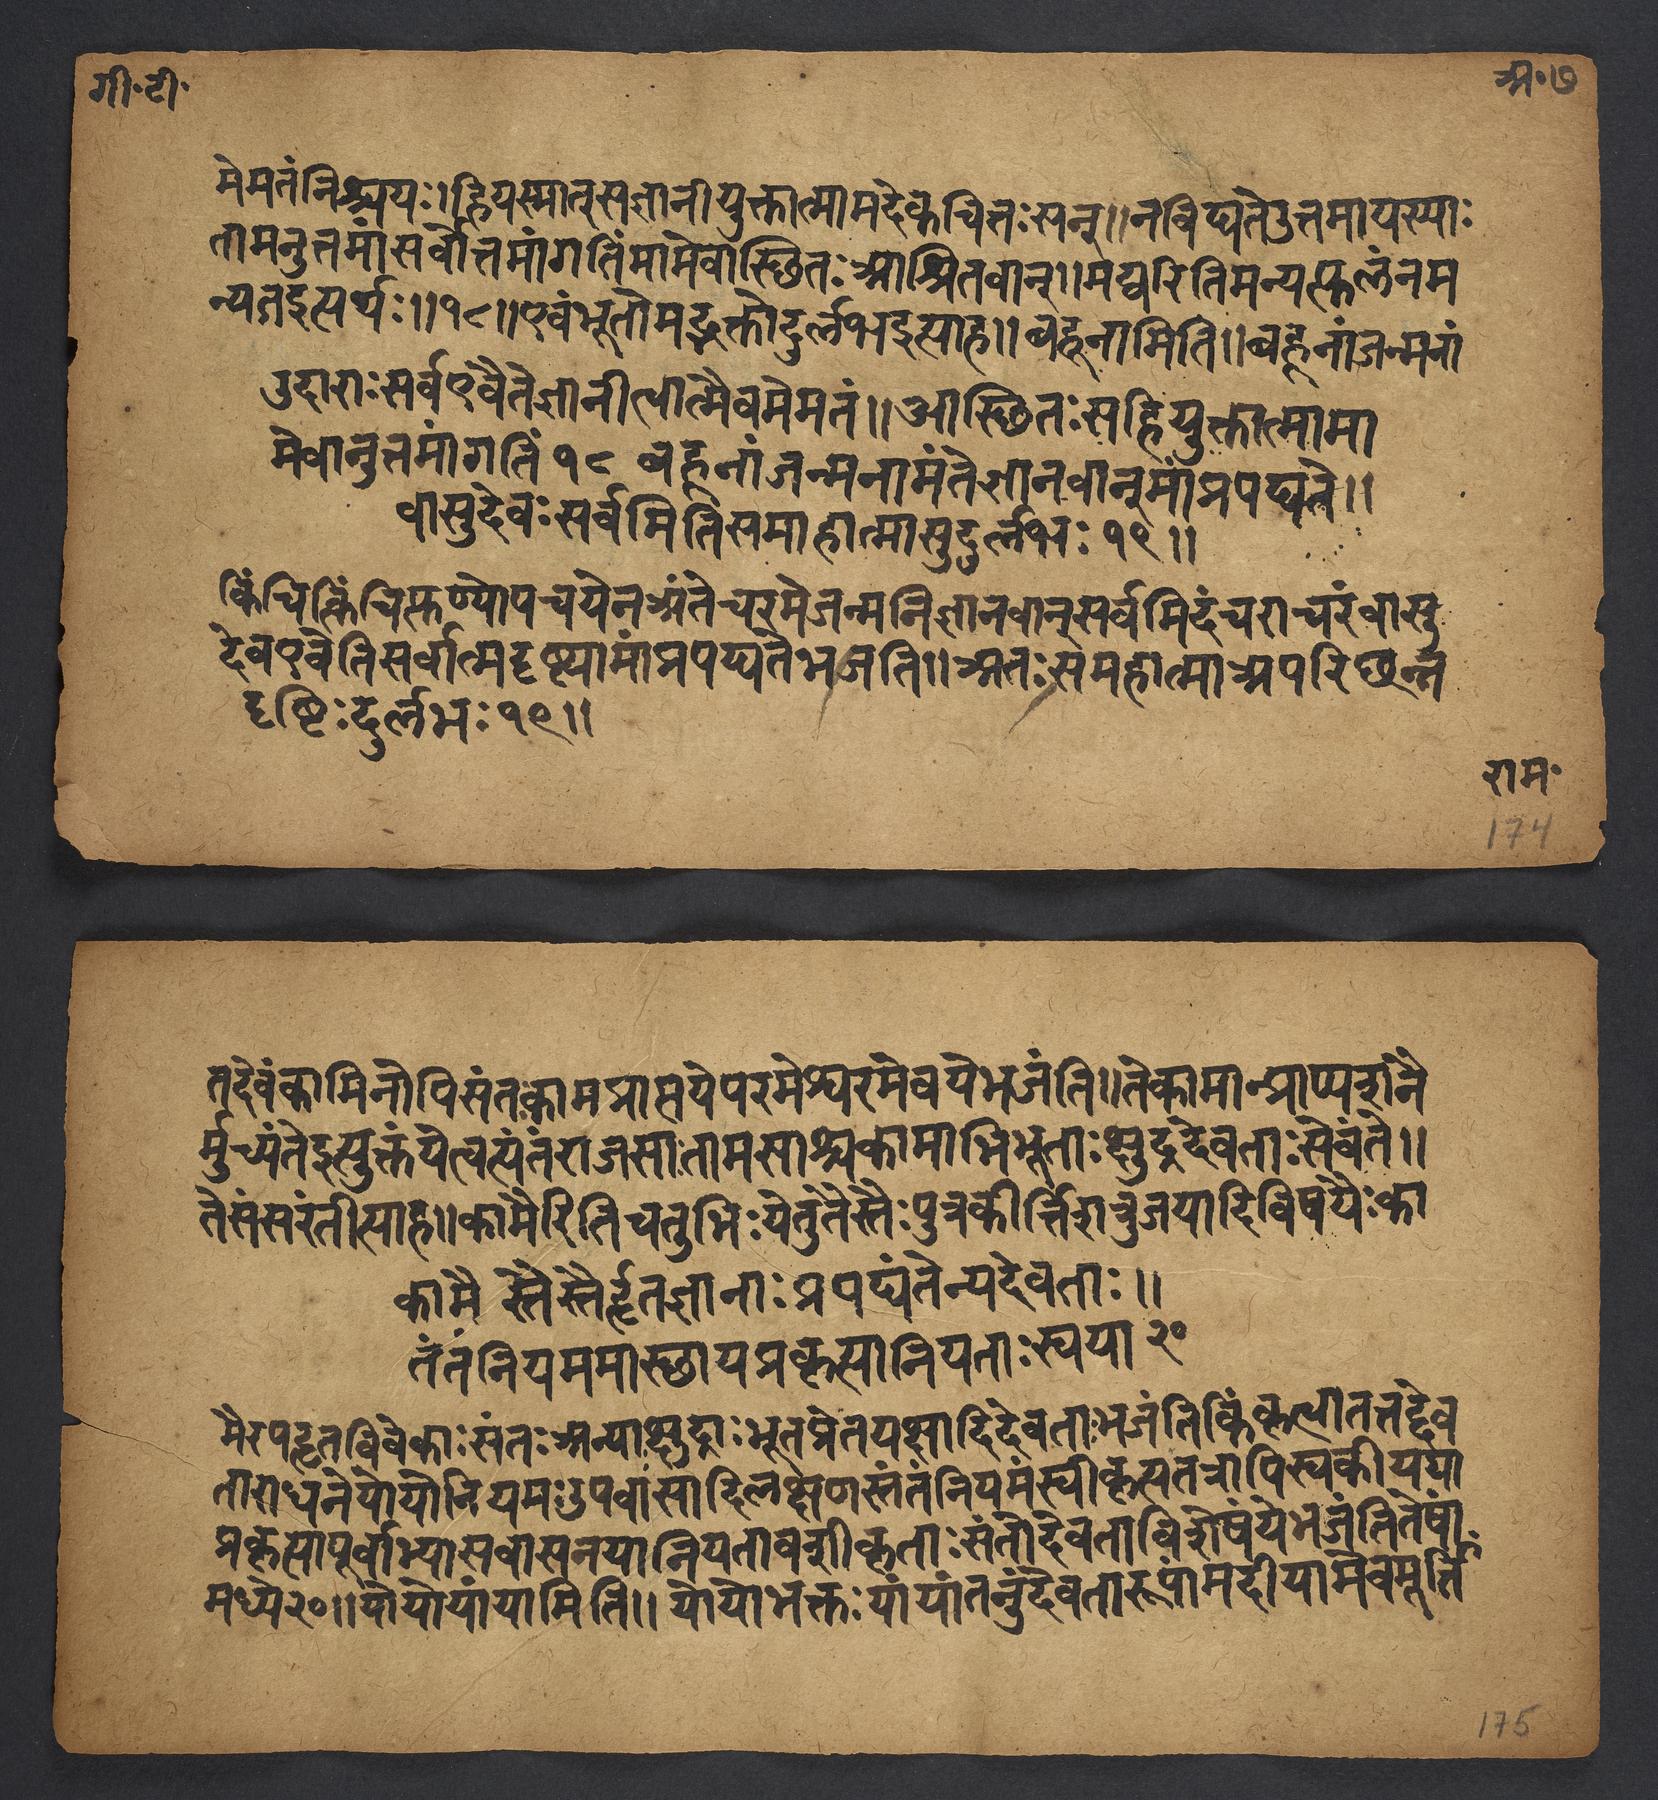 गी॰टी॰
अ॰७
मेमतंनिश्चयः।हियस्मात्सज्ञानीयुक्तात्मामदेकचित्तःसन्॥नविद्यतेउत्तमायस्याः
तामनुत्तमांसर्वोत्तमांगतिंमामेवास्छितःआश्रितवान्॥मद्व्यरितिमन्यत्फलंनम
न्यतइत्यर्थः॥१८॥एवंभूतोमद्भक्तोदुर्लभइत्याह॥बहूनामिति॥बहूनांजन्मनां
उदाराःसर्वएवैतेज्ञानीत्वात्मैवमेमतं॥आस्छितःसहियुक्तात्मामा
मेवानुत्तमांगतिं१८बहूनांजन्मनामंतेज्ञानवान्मांप्रपद्यते॥
वासुदेवःसर्वमितिसमाहात्मासुदुर्लभः१९॥
किंचित्किंचित्फण्योपचयेनअंतेचरमेजन्मनिज्ञानवान्सर्वमिदंचराचरंवासु
देवएवेतिसर्वात्मदृष्ट्यामांप्रपद्यतेभजति॥अतःसमहात्माअपरिछन्न
दृष्टिःदुर्लभः१९॥
राम॰
174
तदेवंकामिनोपिसंतःकामप्राप्तयेपरमेश्वरमेवयेभजंति॥तेकामान्प्राप्यशनै
र्मुच्यंतेइत्युक्तंयेत्वत्यंतंराजसाःतामसाश्चकामाभिभूताःक्षुद्रदेवताःसेवंते॥
तेसंसरंतीत्याह॥कामैरितिचतुर्भिःयेतुतैस्तैःपुत्रकीर्त्तिशत्रुजयादिविषयैःका
कामैस्तैस्तैर्हृतज्ञानाःप्रपद्यंतेन्यदेवताः॥
तंतंनियममास्छायप्रकृत्यानियताःस्वया२०
मैरपहृतविवेकाःसंतःअन्याःक्षुद्राःभूतप्रेतयक्षादिदेवताःभजंतिकिंकृत्वातत्तद्देव
ताराधनेयोयोनियमःउपवासादिलक्षणस्तंतंनियमंस्वीकृत्यतत्रापिस्वकीयया
प्रकृत्यापूर्वाभ्यासवासनयानियतावशीकृताःसंतोदेवताविशेषंयेभजंतितेषां
मध्ये२०॥योयोयांयामिति॥योयोभक्तःयांयांतनुंदेवतारूपांमदीयामेवमूर्त्तिं
175